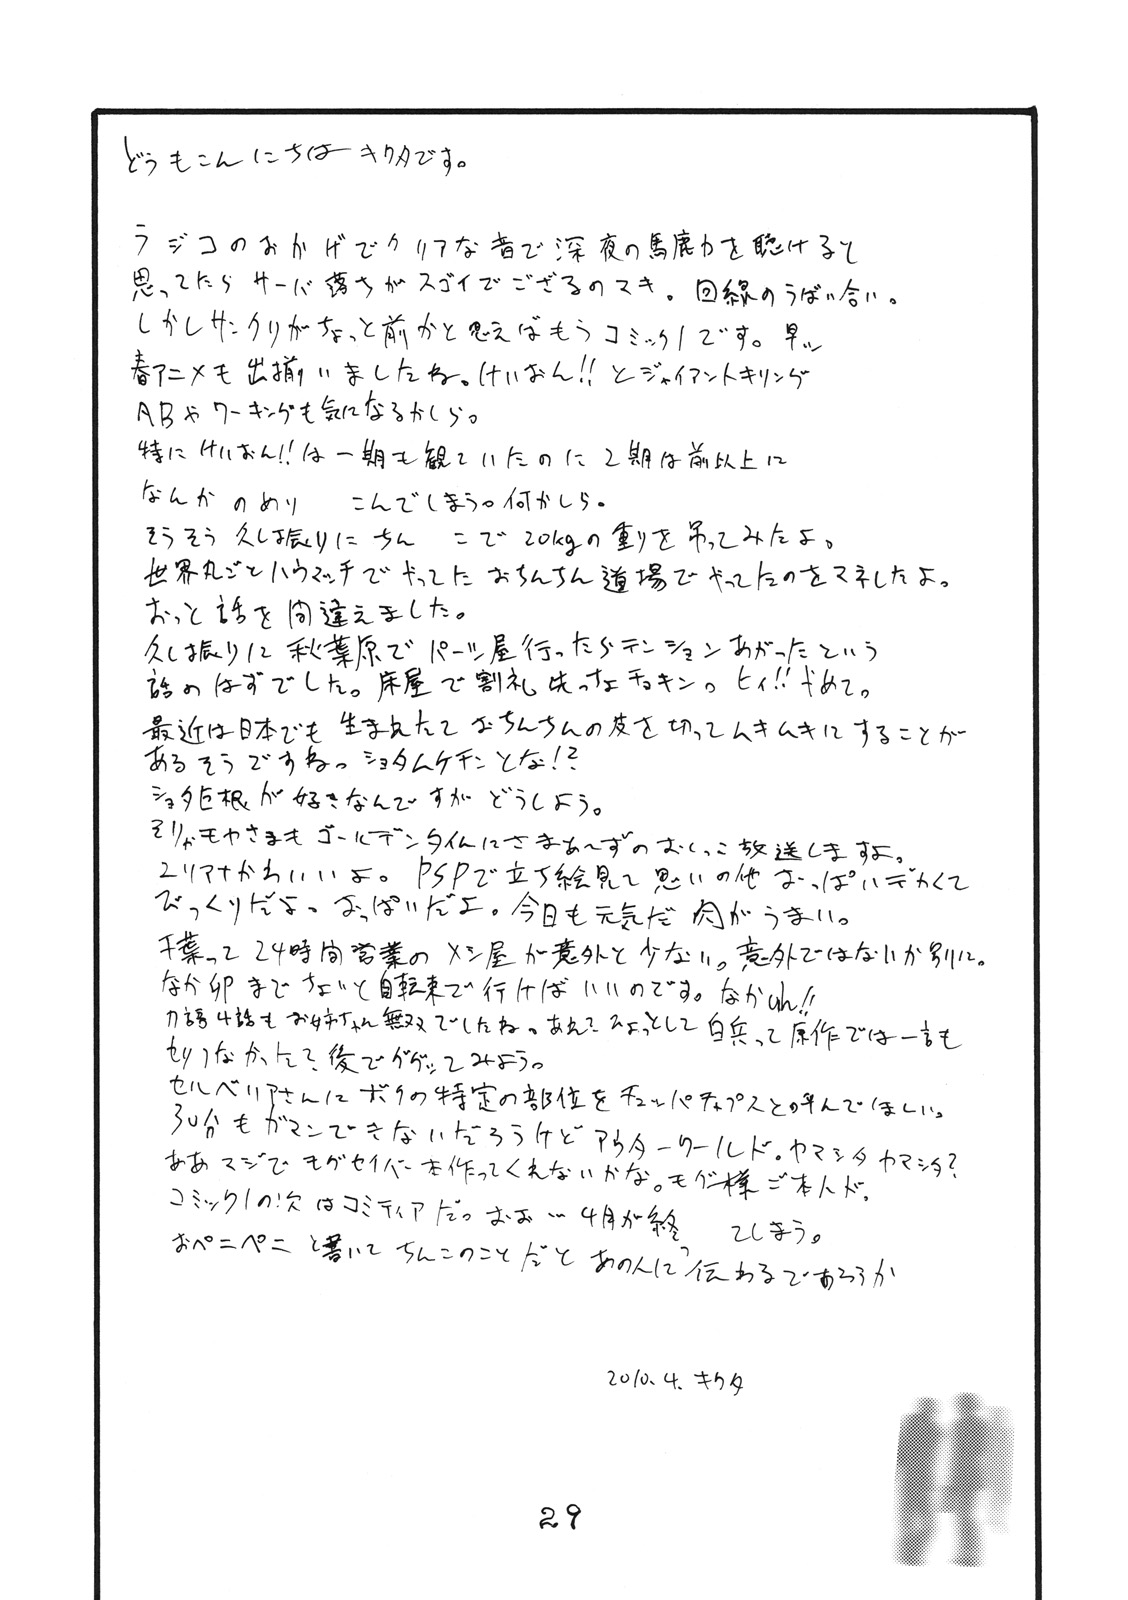 どうもこんにちは キクタです。
ラジコのおかげでクリアな音で深夜の馬鹿力を聴けると
思ってたら サーバ落ちがスゴイでござるのマキ。回線のうばい合い。
しかしサンクリがちょっと前かと思えばもうコミック1です。早ッ
春アニメも出揃いましたね。けいおん!!とジャイアントキリング
ABやワーキングも気になるかしら。
特にけいおん!!は一期も観ていたのに2期は前以上に
なんか のめり こんでしまう。何かしら。
そうそう久し振りに ちん こで20kgの重りを吊ってみたよ。
世界丸ごとハウマッチでやってた おちんちん道場でやってたのをマネしたよ。
おっと話を間違えました。
久し振りに 秋葉原で パーツ屋行ったらテンションあがったという
話のはずでした。床屋で割礼 先っちょチョキン。ヒィ!!やめて。
そりゃもやさまも ゴールデンタイムにさまぁ〜ずのおしっこ放送しますよ。
ユリアナかわいいよ。PSPで立ち絵見て 思いの他 おっぱいデカくて
びっくりだよ。おっぱいだよ。今日も元気だ 肉がうまい。
千葉って24時間営業の メシ屋が意外と少ない。意外ではないか別に。
なか卯まで ちょいと自転車で行けば いいのです。なかuh!!
刀語4話も お姉ちゃん無双でしたね。あれ?ひょっとして白兵って原作では一言も
セリフなかった?後でググッてみよう。
セルベリアさんに ボクの特定の部位をチュッパチャプスと呼んでほしい。
30分もガマンできないだろうけど アウターワールド。ヤマシタ ヤマシタ?
ああマジで モグセイバー本作ってくれないかな。モグ様ご本人が。
コミック1の次はコミティアだっ おお… 4月が終 てしまう。
おペニペニ と書いて ちんこのことだと あの人に 伝わるであろうか
2010.4. キクタ
29